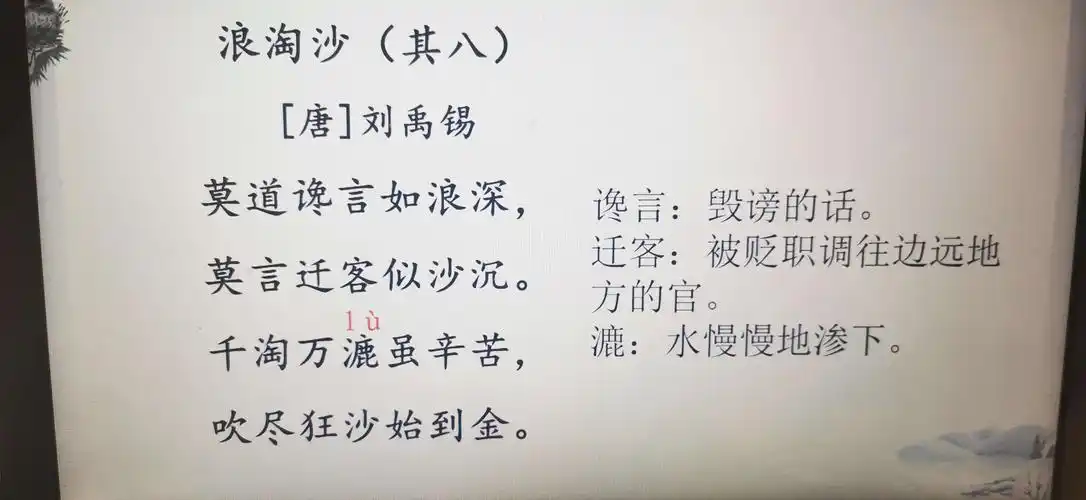 浪淘沙（其八）
[唐]刘禹锡
莫道谗言如浪深，
莫言迁客似沙沉。
lù
千淘万漉虽辛苦，
吹尽狂沙始到金。
谗言：毁谤的话。
迁客：被贬职调往边远地
方的官。
漉：水慢慢地渗下。